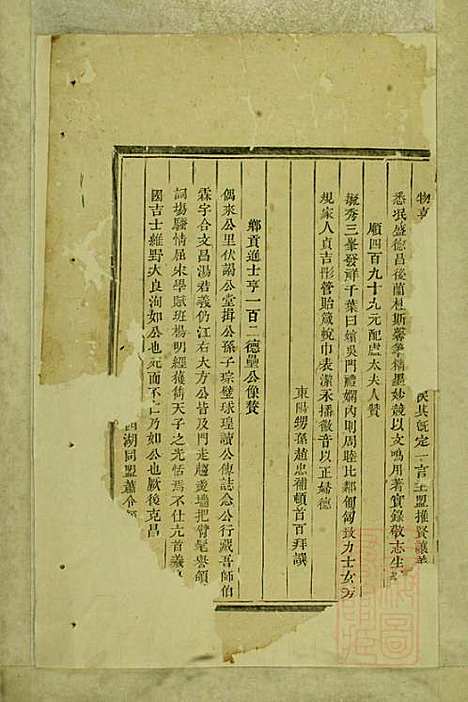 物
氏其旣定一言主盟推賢讓
悉泯盛德昌後蘭桂斯馨爹稱墨妙兢以文鳴用著實錄敬志生
順四百九十九元配盧太夫人贊
毓秀三峯發祥千葉曰嬪吳門禮嫻內則周睦比鄰匍匐致力士女方
規家人貞吉彤管貽箴帨巾表潔永播徽音以正婦德
東陽甥孫趙忠補頓首百拜譔
鄉貢進士亨一百二德壘公像贊
偶來公里伏謁公堂揖公孫子琮璧球瑝讀公傳誌念公行藏吾師伯
霖字合文昌湯君義仍江右大方公皆及門走趨羹墻把臂髦譽頡
詞場騷情屈宋學賦班楊明經獲儁天子之光恬焉不仕亢首義
國吉士維野大良洵如公也死而不亡乃如公也厥後克昌
西湖同盟蕭令